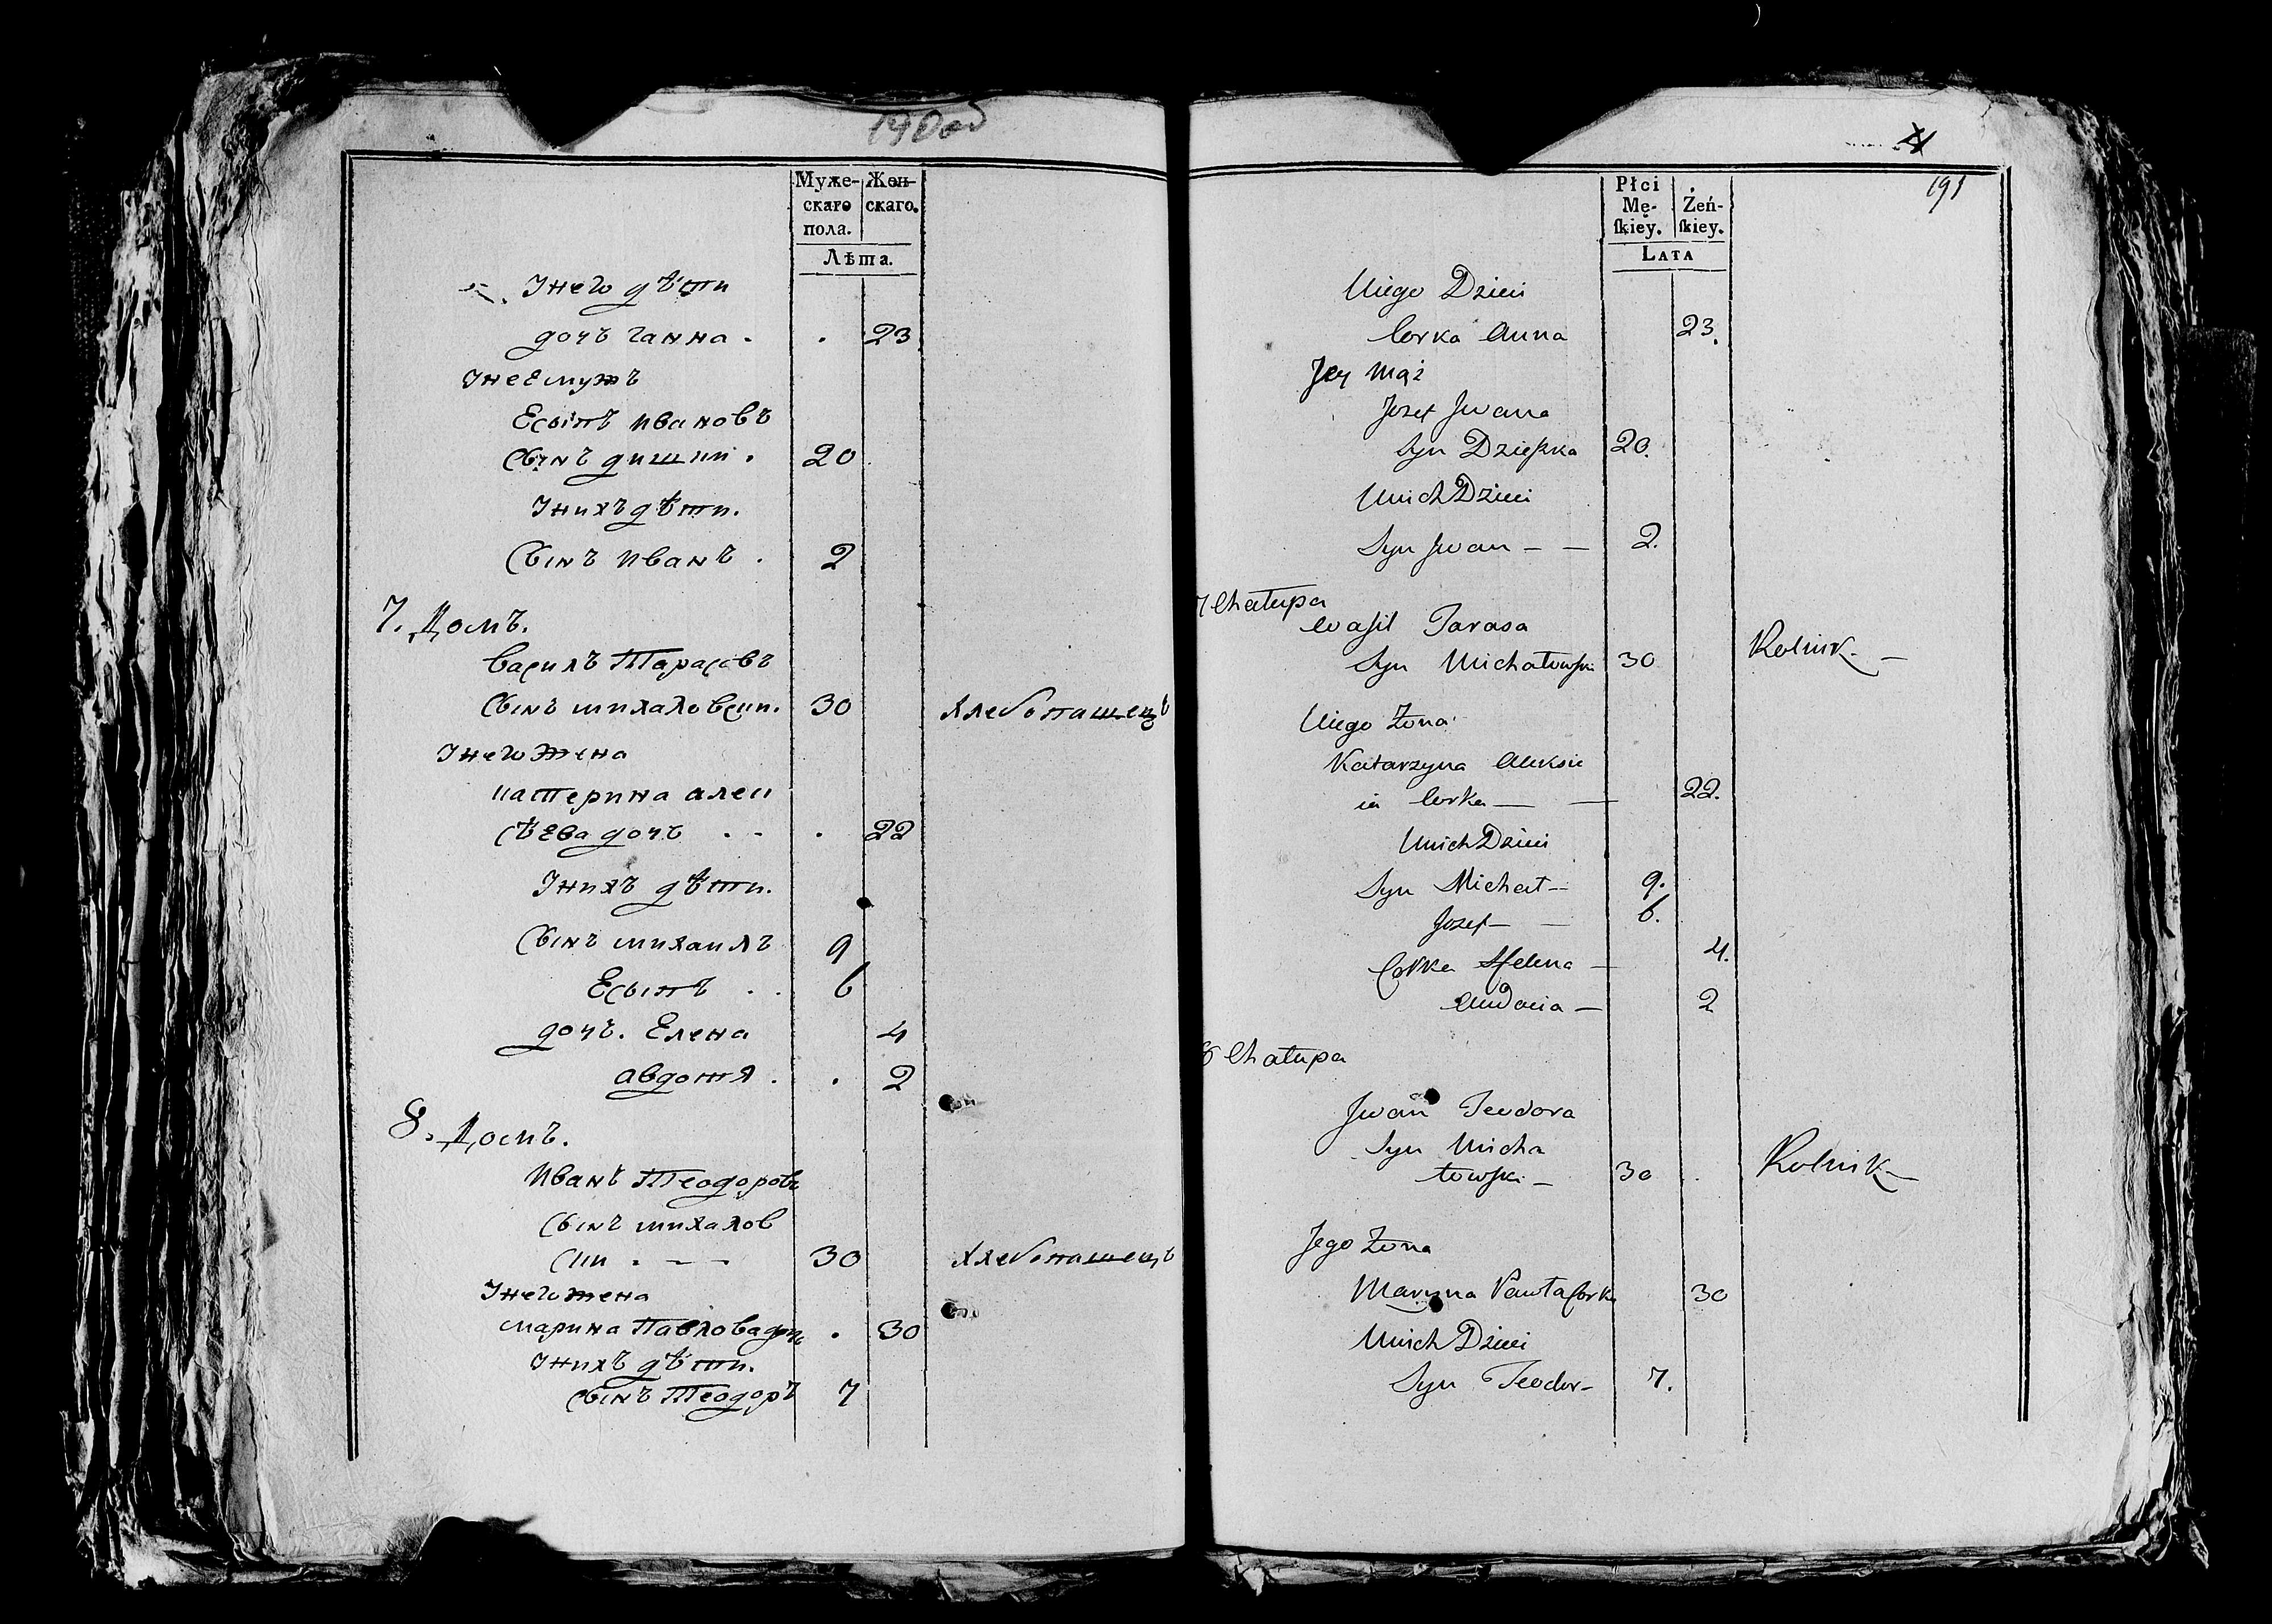 190 об
Муже- Жен-
скаго скаго.
пола.
Лѣта.
Унего дѣти
дочъ ганна . . 23
Унеемужъ
Есыпъ ивановъ
Сынъ дишки . 20
Унихъ дѣти.
Сынъ иванъ . 2
7. Домъ.
василъ Тарасовъ
Сынъ михаловски. 30 Хлебопашецъ
Унего жена
катерина алек
сѣева дочъ . . . 22
Унихъ дѣти.
Сынъ михаилъ 9
Есыпъ . . 6
дочъ. Елена 4
авдотя . . 2
8. Домъ.
иванъ Теодоровъ
Сынъ михалов
ски . — — 30 Хлебопашецъ
Унего жена
марина Павловадочъ . 30
Унихъ дѣти.
сынъ Теодоръ 7
191
Płci
Mę- Żeń-
ſkiey. ſkiey.
LATA
Uiego Dzieci
Corka Anna 23.
Jey Mąż
Jozef Jwana
Syn Dzieszka 20.
Unich Dzieci
Syn Jwan — — 2.
7 Chałupa
Waſil Tarasa
Syn Michałowſki 30 Rolnik. —
Uiego Żona
Katarzyna Aleksie
ia Corka — — 22.
Unich Dzieci
Syn Michał — 9.
Jozef — — 6.
Corka Helena — 4.
Audocia — 2
8 Chałupa
Jwan Teodora
Syn Micha
łowſki — 30 Rolnik —
Jego Żona
Maryna Pawła Corka 30
Unich Dzieci
Syn Teodor — 7.